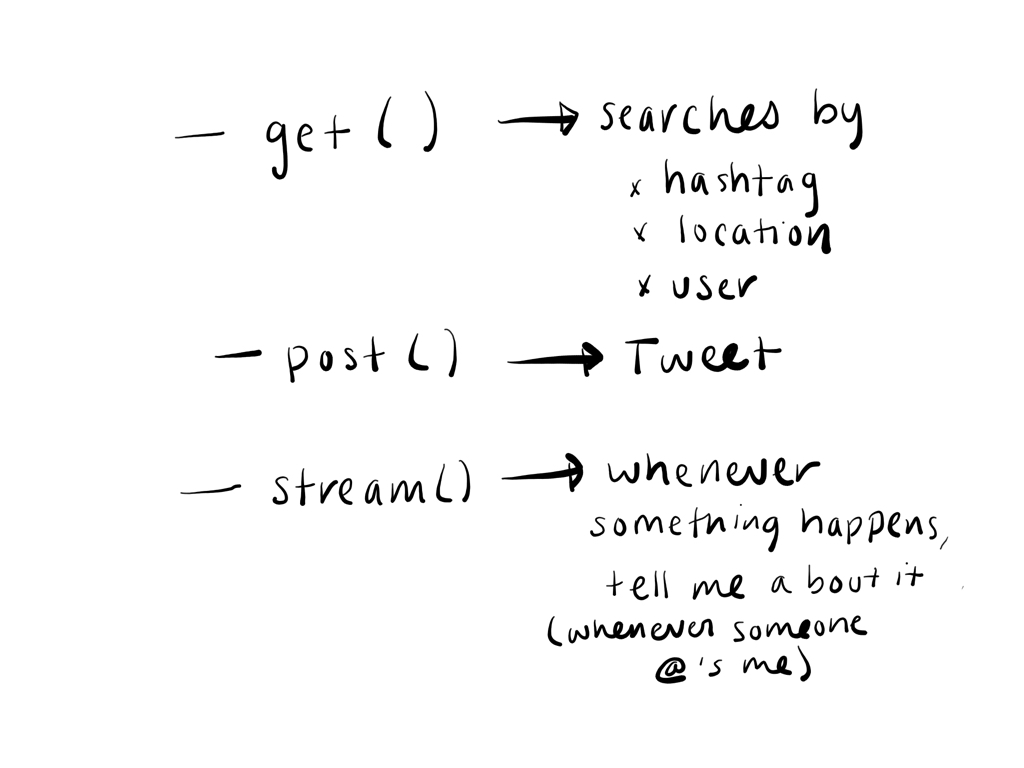 — get() → searches by
x hashtag
x location
x user
— post() → Tweet
— stream() → whenever
something happens,
tell me about it
(whenever someone
@'s me)